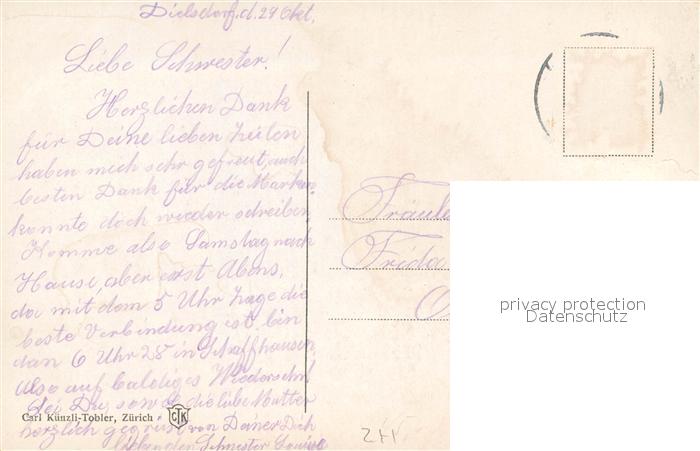 Dielsdorf. d. 29 Okt.
Liebe Schwester!
Herzlichen Dank
für Deine lieben Zeilen
haben mich sehr gefreut, auch
besten Dank für die Marken,
konnte doch wieder schreiben
Komme also Samstag nach
Hause, aber erst Abens,
da mit dem 5 Uhr Zuge die
beste Verbindung ist, bin
dan 6 Uhr 28 in Schaffhausen,
Also auf baldiges Wiedersehn!
Sei Du, sowie die liebe Mutter
herzlich gegrüsst von Deiner Dich
liebenden Schwester Louise
Carl Künzli-Tobler, Zürich CTK
Fräule
Frida
privacy protection
Datenschutz